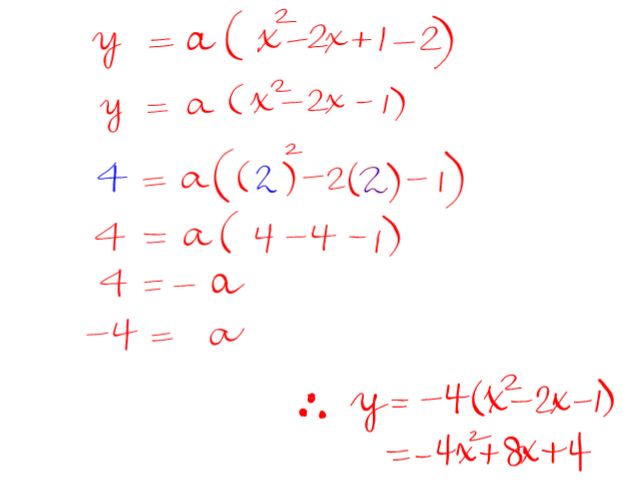 y = a(x²-2x+1-2)
y = a(x²-2x-1)
4 = a((2)²-2(2)-1)
4 = a(4-4-1)
4 = -a
-4 = a
∴ y = -4(x²-2x-1)
= -4x²+8x+4